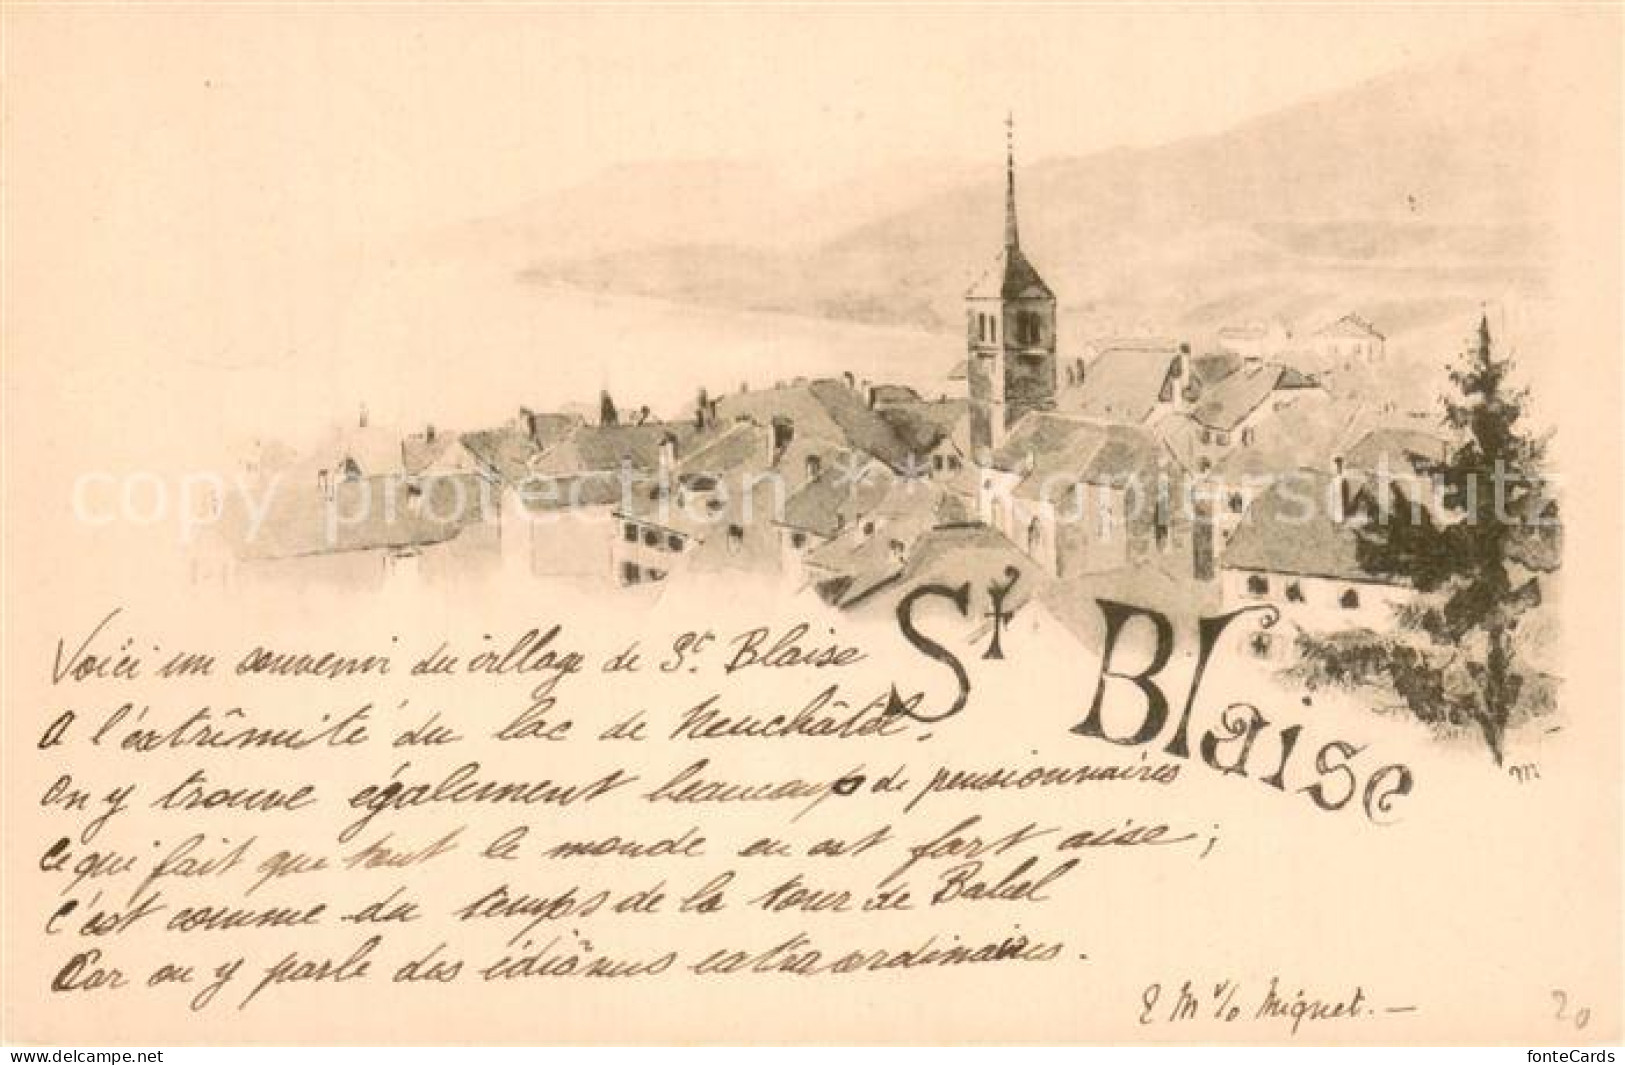 copy protection ** Kopie-Schutz
St Blaise
m
Voici un souvenir du village de St. Blaise
A l'extrêmité du lac de Neuchâtel,
On y trouve également beaucoup de pensionnaires
Ce qui fait que tout le monde en est fort aise;
C'est comme du temps de la tour de Babel
Car on y parle des idiômes extraordinaires.
E M v/o Miquet. —
20
www.delcampe.net
fonteCards